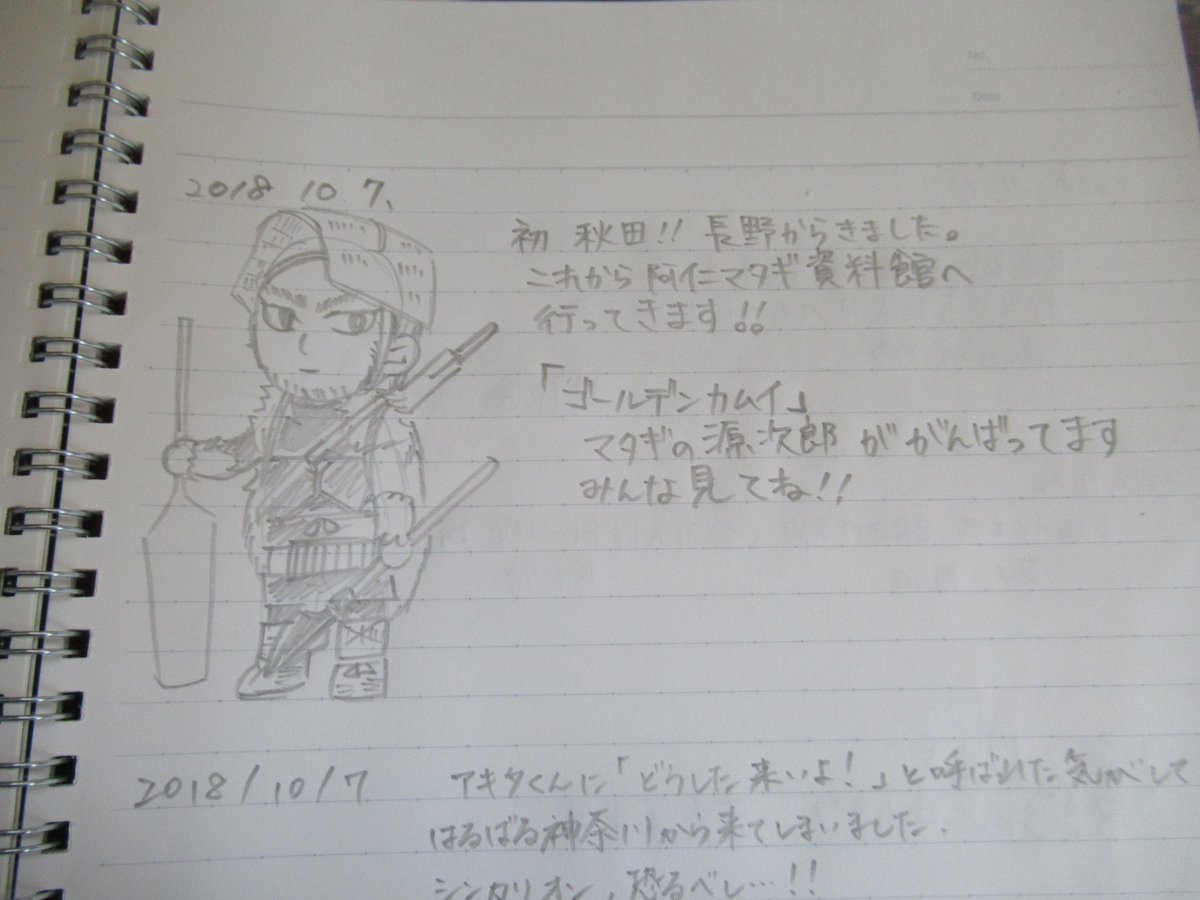 No.
Date
2018 10 7.
初 秋田!! 長野からきました。
これから阿仁マタギ資料館へ
行ってきます!!
「ゴールデンカムイ」
マタギの源次郎ががんばってます
みんな見てね!!
2018/10/7
アキタくんに「どうした来いよ!」と呼ばれた気がして
はるばる神奈川から来てしまいました.
シンカリオン、恐るべし…!!